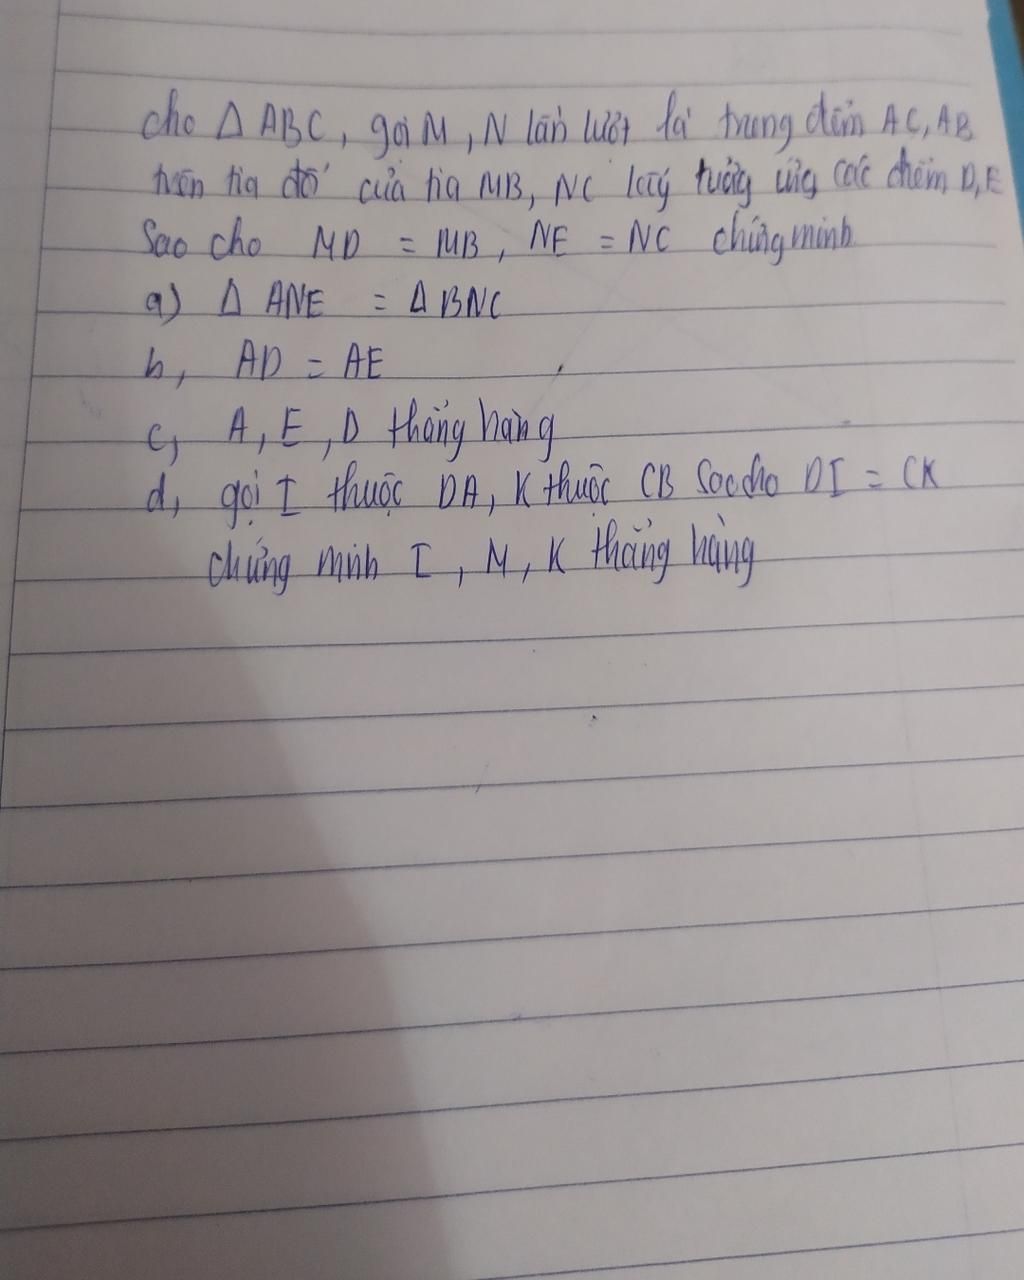 cho Δ ABC, gọi M, N lần lượt là trung điểm AC, AB
trên tia đối của tia MB, NC lấy tưởng ứng các điểm D, E
Sao cho MD = MB, NE = NC chứng minh
a) Δ ANE = Δ BNC
b, AD = AE
c, A, E, D thẳng hàng
d, gọi I thuộc DA, K thuộc CB Sao cho DI = CK
chứng minh I, M, K thẳng hàng